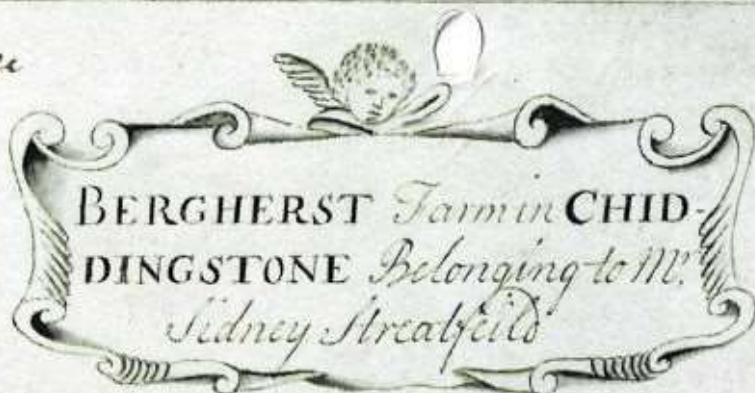 BERGHERST Farm in CHID-
DINGSTONE Belonging to Mr.
Sidney Streatfeild